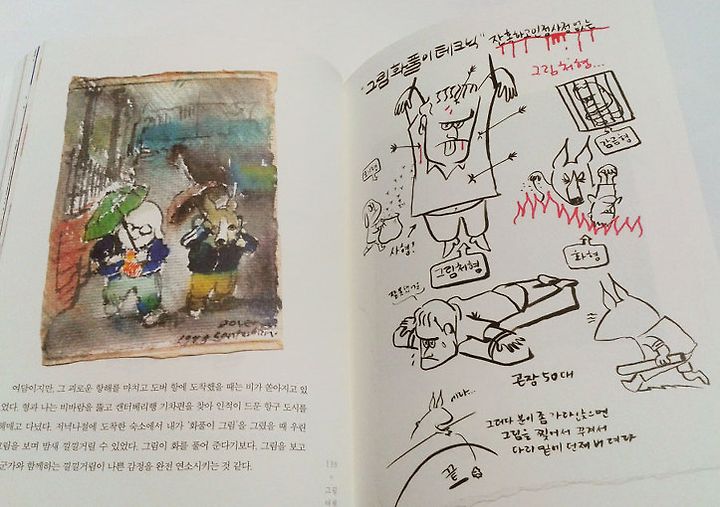 여덟이지만, 그 괴로운 항해를 마치고 도버 항에 도착했을 때는 비가 쏟아지고 있
었다. 형과 나는 비바람을 뚫고 캔터베리행 기차편을 찾아 인적이 드문 항구 도시를
헤매고 다녔다. 저녁나절에 도착한 숙소에서 내가 '화풀이 그림'을 그렸을 때 우린
그림을 보며 밤새 낄낄거릴 수 있었다. 그림이 화를 풀어 준다기보다. 그림을 보고
군가와 함께하는 낄낄거림이 나쁜 감정을 완전 연소시키는 것 같다.
138
그림
"그림 화풀이 테크닉"
잔혹하고 인정사정 없는
그림처형...
감금형
사형!
그림처형
화형
곤장 50대
이따...
그러다 분이 좀 가라앉으면
그림을 찢어서 꾸겨서
다리 밑에 던져 버린다
끝